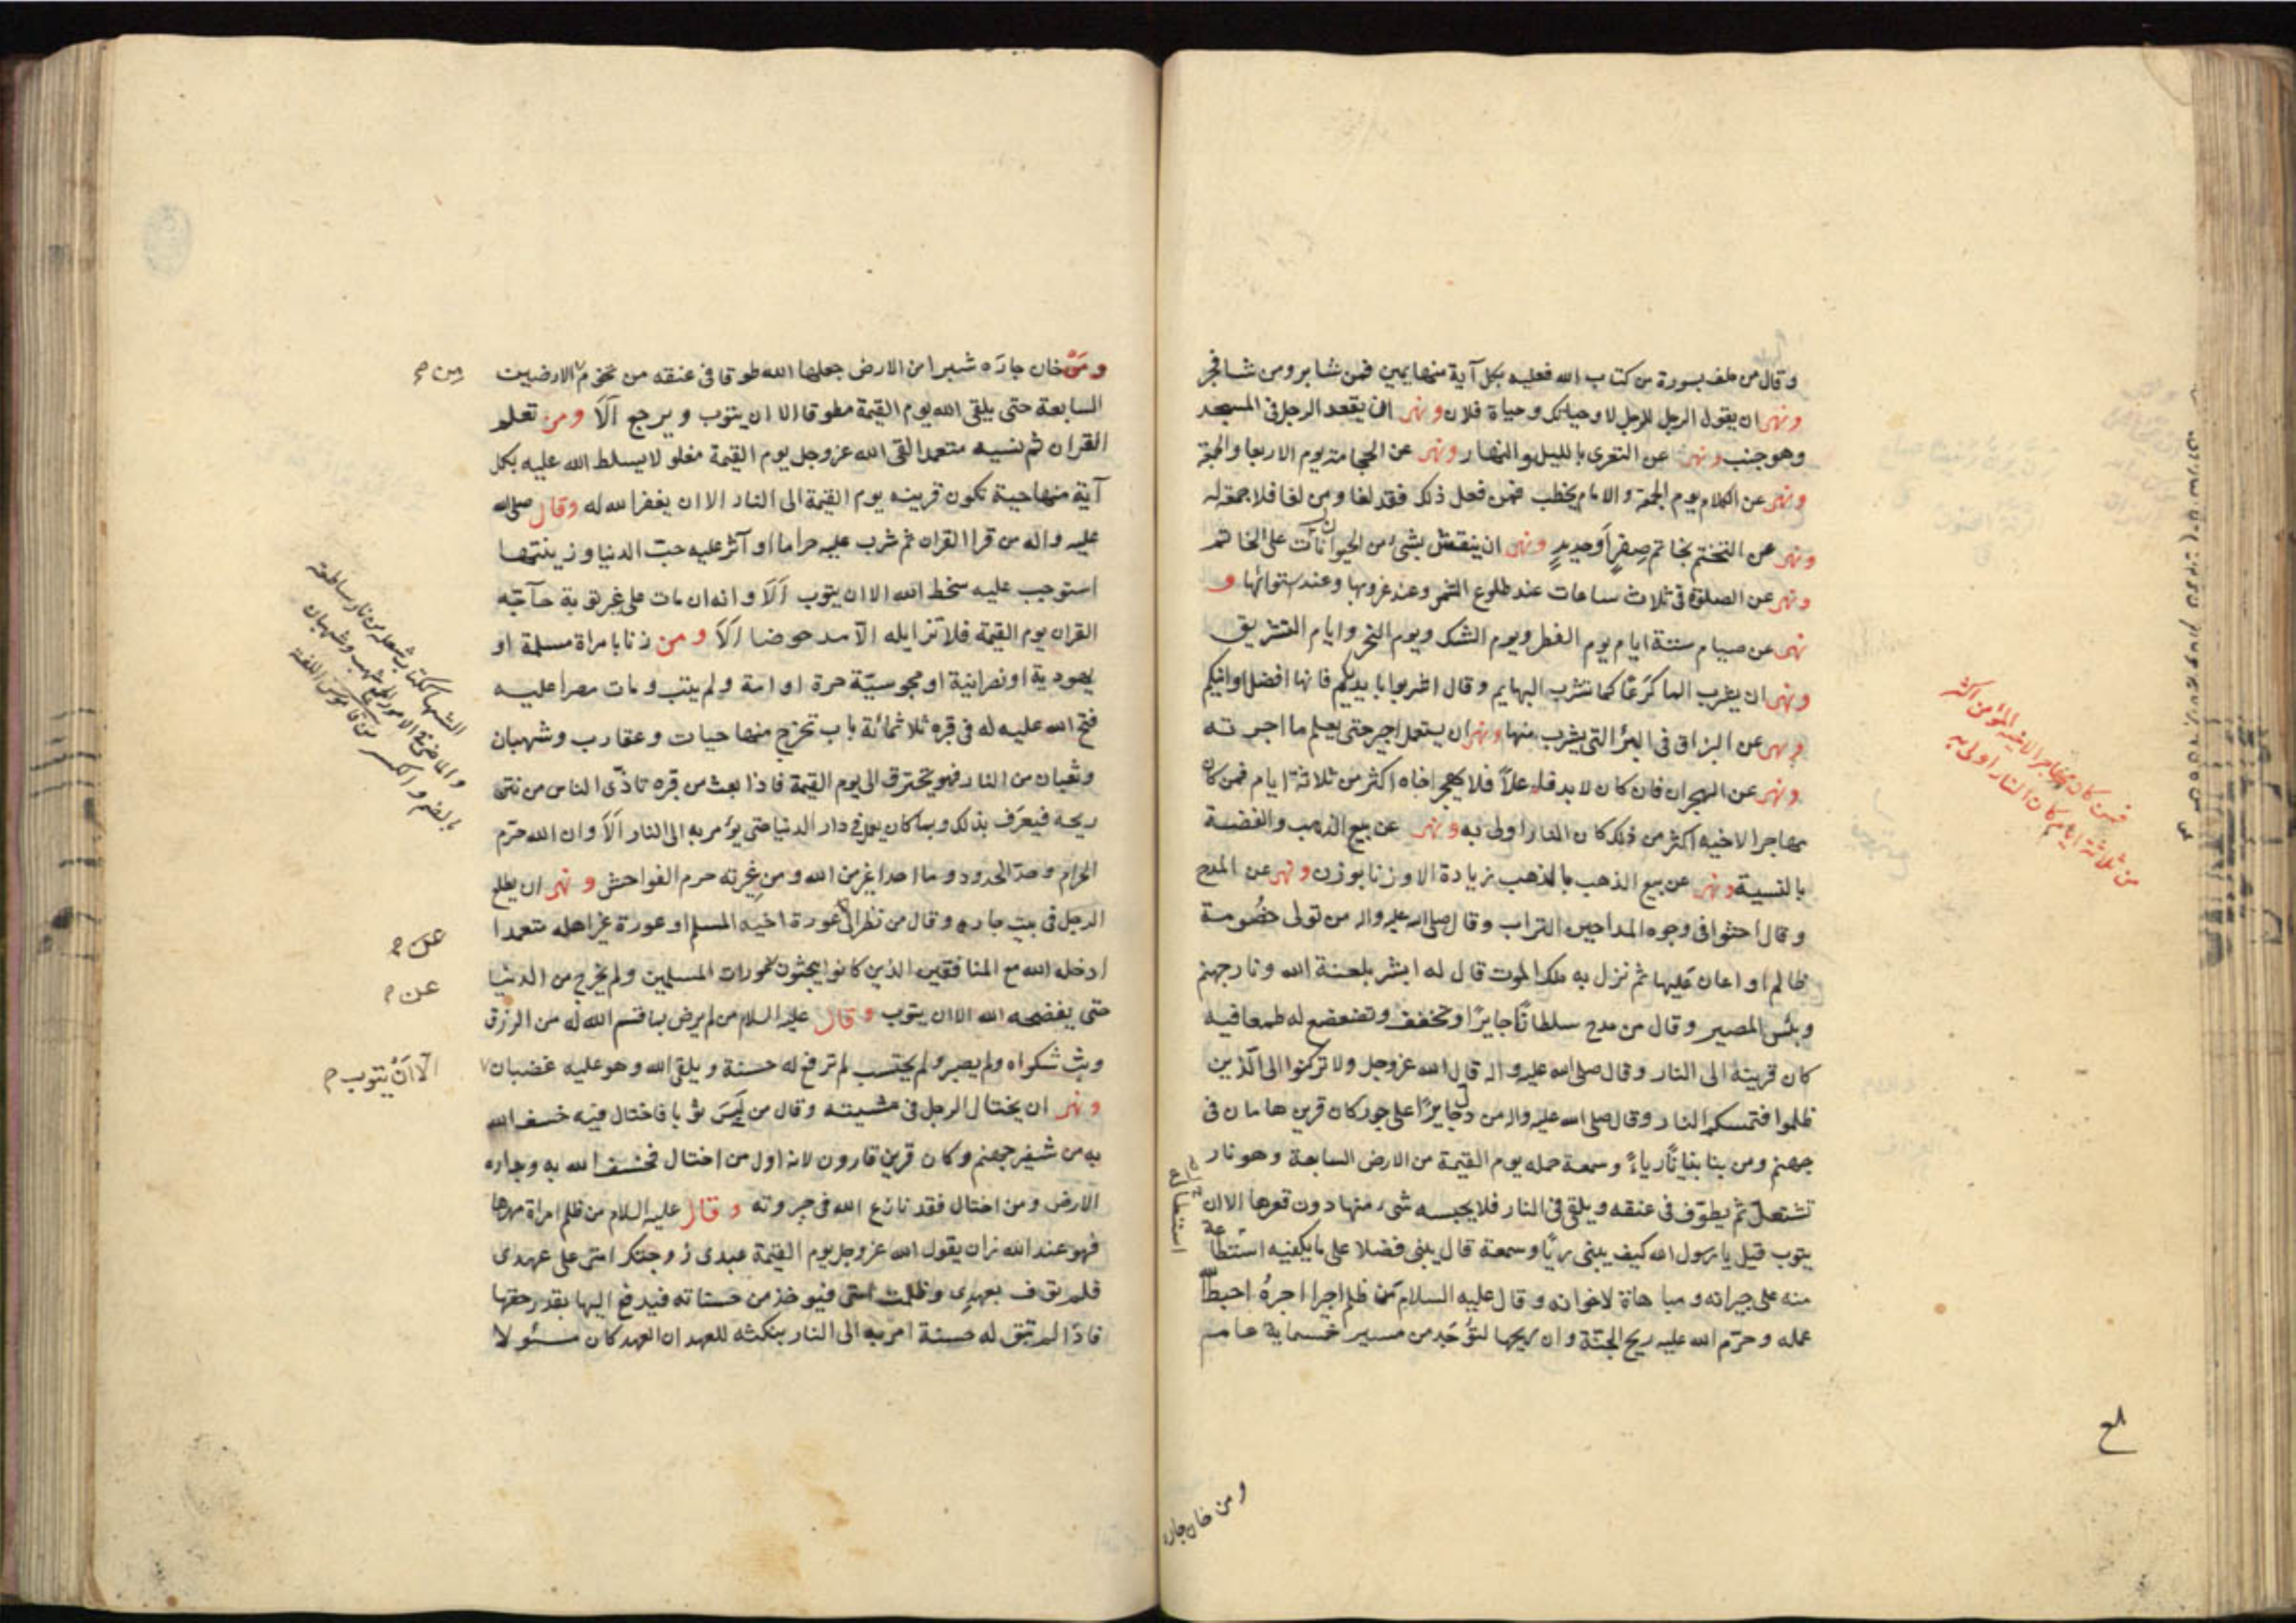 وقال من حلف بسورة من كتاب الله فعليه بكل آية منها يمين فمن شا بر ومن شا فجر
ونهى ان يقول الرجل للرجل لا وحياتك وحياة فلان ونهى ان يقعد الرجل فى المسجد
وهو جنب ونهى عن التعرى بالليل والنهار ونهى عن الحجامة يوم الاربعا والجمعة
ونهى عن الكلام يوم الجمعة والامام يخطب فمن فعل ذلك فقد لغا ومن لغا فلا جمعة له
ونهى عن التختم بخاتم صفرٍ اَو حديدٍ ونهى ان ينقش بشئ من الحيوانات على الخاتم
ونهى عن الصلوة فى ثلاث ساعات عند طلوع الشمس وعند غروبها وعند استوائها و
نهى عن صيام ستة ايام يوم الفطر ويوم الشك ويوم النحر وايام التشريق
ونهى ان يشرب الما كَرَعًا كما تشرب البهايم وقال اشربوا بايديكم فانها افضل اوانيكم
ونهى عن البزاق فى البئر التى يشرب منها ونهى ان يستعمل اجير حتى يعلم ما اجرته
ونهى عن الهجران فان كان لا بد فاعلاً فلا يهجر اخاه اكثر من ثلاثة ايام فمن كان
مهاجرا لاخيه اكثر من ذلك كان النار اولى به ونهى عن بيع الذهب والفضة
بالنسية ونهى عن بيع الذهب بالذهب بزيادة الا وزنا بوزن ونهى عن المدح
وقال احثوا فى وجوه المداحين التراب وقال صلى الله عليه واله من تولى خصُومة
ظالم او اعان عَليها ثم نزل به ملك الموت قال له ابشر بلعنة الله ونار جهنم
وبئس المصير وقال من مدح سلطانًا جايرًا او تخفف وتضعضع له طمعا فيه
كان قرينه الى النار وقال صلى الله عليه واله قال الله عزوجل ولا تركنوا الى الّذين
ظلموا فتمسكم النار وقال صلى الله عليه واله من دل جايرًا على جور كان قرين هامان فى
جهنم ومن بنا بنيانًا رياءً وسمعة حمله يوم القيمة من الارض السابعة وهو نار
تشتعل ثم يطوّف فى عنقه ويلقى فى النار فلا يحبسه شئ منها دون قعرها الا ان
يتوب قيل يا رسول الله كيف يبنى ريًا وسمعة قال يبنى فضلا على ما يكفيه استطالة
منه على جيرانه ومباهاة لاخوانه وقال عليه السلام مَن ظلم اجيرا اجرهُ احبط الله
عمله وحرّم الله عليه ريح الجنّة وان ريحها لتوُجَد من مسير خمسماية عام
فمن كان مهاجرا لاخيه المؤمن اكثر
من ثلاثة ايام كان النار اولى به
استطالة
ومن خان جاره
ومَنْ خان جارَه شبرا من الارض جعلها الله طوقا فى عنقه من تخوم الارضين
السابعة حتى يلقى الله يوم القيمة مطوقا الا ان يتوب ويرجع اَلَا ومن تعلم
القران ثم نسيه متعمدا لقى الله عزوجل يوم القيمة مغلولا يسلط الله عليه بكل
آية منها حية تكون قرينه يوم القيمة الى النار الا ان يغفر الله له وقال صلى الله
عليه واله من قرا القران ثم شرب عليه حراما او آثر عليه حبّ الدنيا وزينتها
استوجب عليه سخط الله الا ان يتوب اَلَا وانه ان مات على غير توبة حآجّه
القران يوم القيمة فلا تزايله الّا مدحوضا اَلَا ومن زنا بامراة مسلمة او
يهودية او نصرانية او مجوسيّة حرة او امة ولم يتب ومات مصرا عليه
فتح الله عليه له فى قبره ثلاثمائة باب تخرج منها حيات وعقارب وشهبان
وثعبان من النار فهو يحترق الى يوم القيمة فاذا بعث من قبره تاذّى الناس من نتن
ريحه فيعرَف بذلك وبما كان يعمل فى دار الدنيا حتى يؤمر به الى النار اَلَا وان الله حرّم
الحرام وحدّ الحدود وما احد اغير من الله ومن غيرته حرم الفواحش ونهى ان يطلع
الرجل فى بيت جاره وقال من نظر الى عورة اخيه المسلم او عورة غير اهله متعمدا
ادخله الله مع المنافقين الذين كانوا يبحثون عورات المسلمين ولم يخرج من الدنيا
حتى يفضحه الله الا ان يتوب وقال عليه السلام من لم يرض بما قسم الله له من الرزق
وبث شكواه ولم يصبر ولم يحتسب لم ترفع له حسنة ويلقى الله وهو عليه غضبان
ونهى ان يختال الرجل فى مشيته وقال من لَبِسَ ثوبا فاختال فيه خسف الله
به من شفير جهنم وكان قرين قارون لانه اول من اختال فخسف الله به وبداره
الارض ومن اختال فقد نازع الله فى جبروته وقال عليه السلام من ظلم امراة مهرها
فهو عند الله زان يقول الله عزوجل يوم القيمة عبدى زوجتك امتى على عهدى
فلم توف بعهدى وظلمت امتى فيوخذ من حسناته فيدفع اليها بقدر حقها
فاذا لم تبق له حسنة امر به الى النار بنكثه للعهد ان العهد كان مسئولا
الشهاب ككتاب شعلة من نار ساطعة
والماضى فى الامور ج شهب وشهبان
بالضم والكسر من قاموس اللغة
عن
عن
الّا اَنْ يتوب